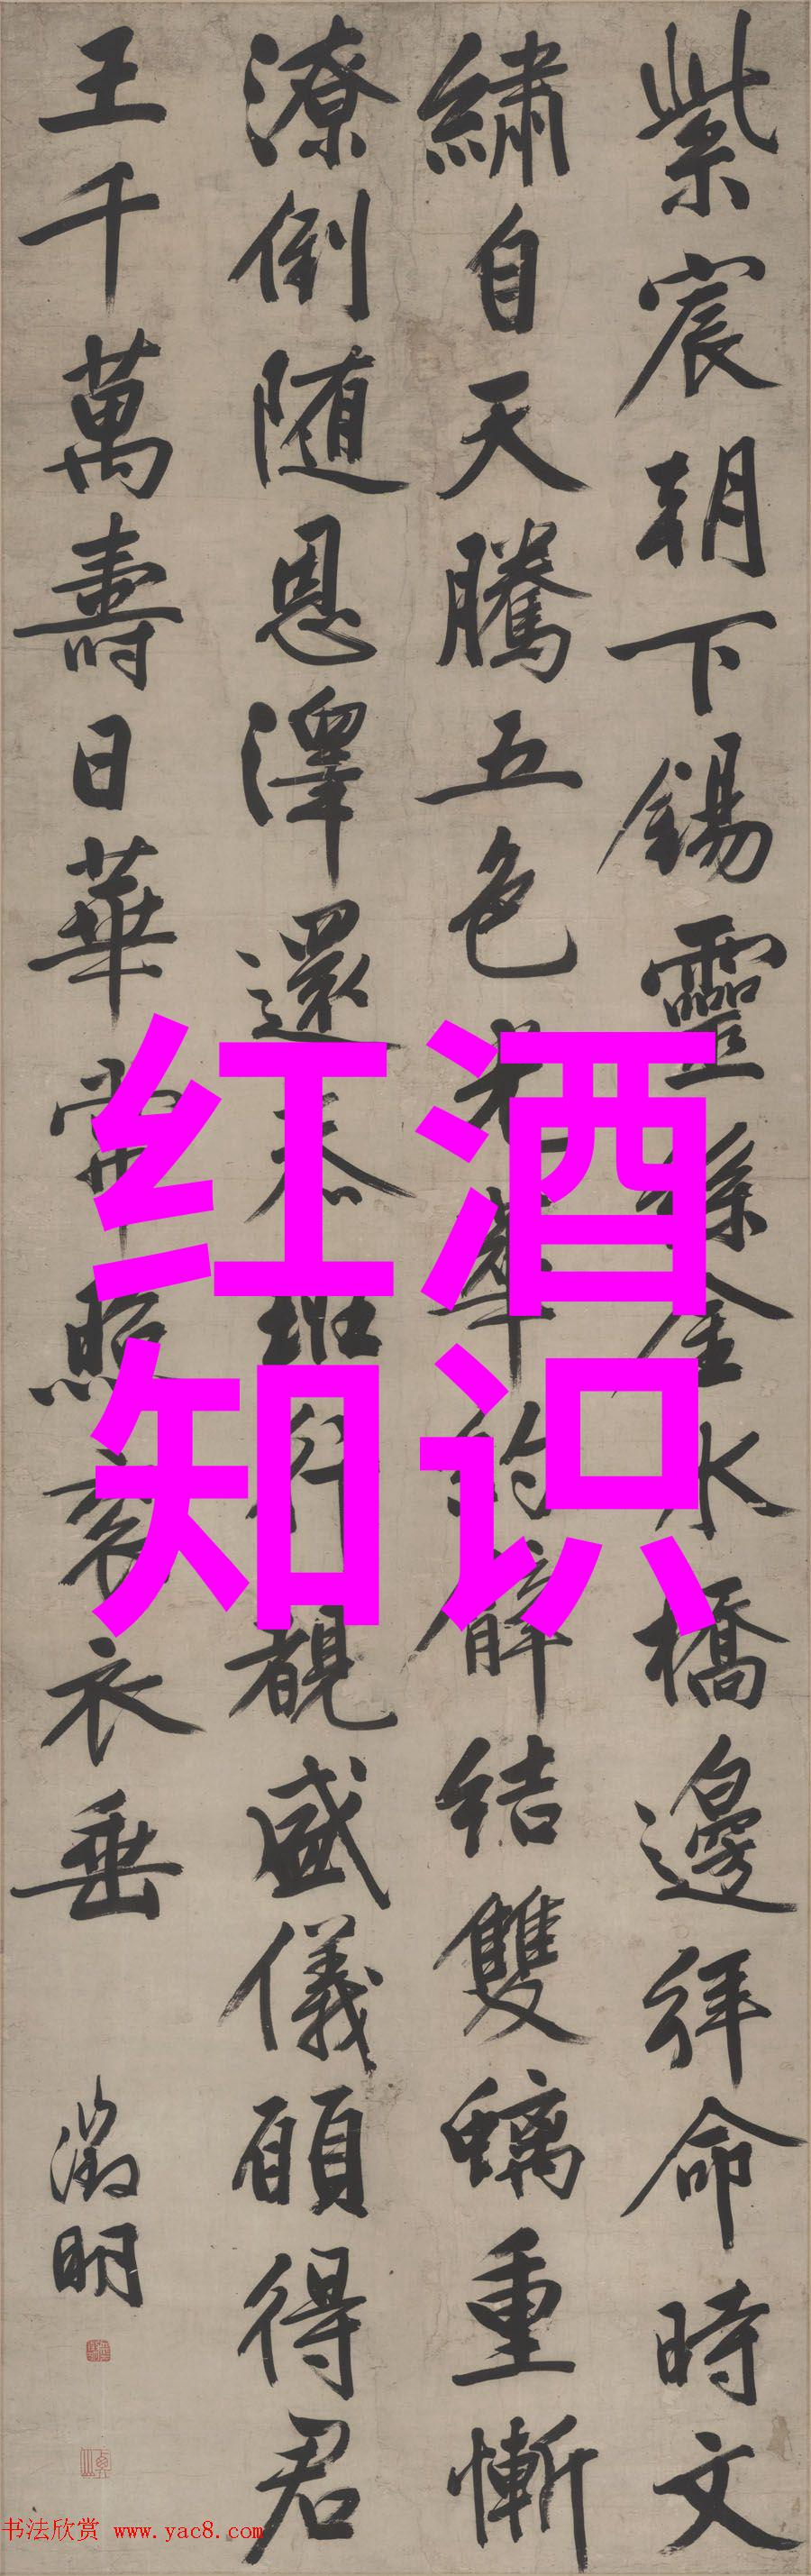 紫宸朝下錫靈絲金水橋邊拜命時文
繡自天騰五色光華約臂結雙螭重慚
潦倒随恩澤還忝班行覩盛儀願得君
王千萬壽日華常照袞衣垂
徵明
红酒
知识
书法欣赏 www.yac8.com